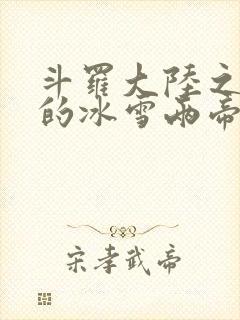 斗羅大陸之
的冰雪兩帝
宋孝武帝